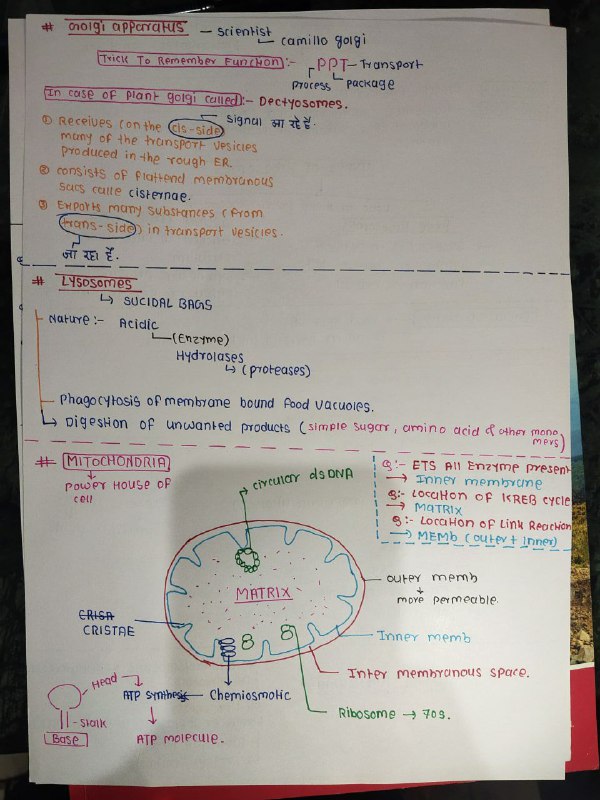 # Golgi apparatus - scientist
camillo golgi
Trick To Remember Function :- PPT - Transport
Process Package
In case of plant golgi called :- Dectyosomes.
Signal आ रहे हैं.
① Receives (on the cis-side)
many of the transport vesicles
produced in the rough ER.
② consists of flattend membranous
sacs calle cisternae.
③ Exports many substances (from
trans-side) in transport vesicles.
जा रहा हैं.
# Lysosomes
SUCIDAL BAGS
Nature :- Acidic
(Enzyme)
Hydrolases
(proteases)
Phagocytosis of membrane bound food vacuoles.
Digestion of unwanted products (simple sugar, amino acid & other mono
mers)
# MITOCHONDRIA
power House of
cell
circular dsDNA
Q:- ETS All Enzyme present
→ Inner membrane
Q:- Location of KREB cycle
→ MATRIX
Q:- Location of Link Reaction
→ MEMb (outer + Inner)
MATRIX
outer memb
more permeable.
CRISA
CRISTAE
Inner memb
Inter membranous space.
Ribosome → 70s.
Head
ATP synthesis
Chemiosmotic
- Stalk
Base
ATP molecule.